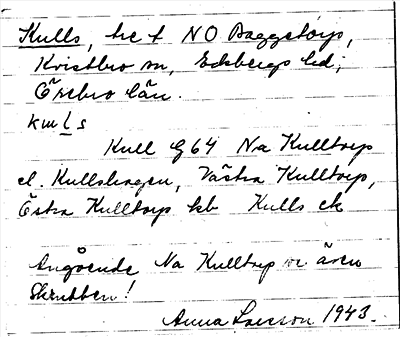 Kulls, tre t NO Baggetorp,
Kvistbro sn, Edsbergs hd;
Örebro län.
kuḷs
Kull G64 Na Kulltorp
el. Kullshagen, Västra Kulltorp,
Östra Kulltorp kb Kulls ek
Angående Na Kulltorp se även
Skrubben!
Anna Larsson 1943.